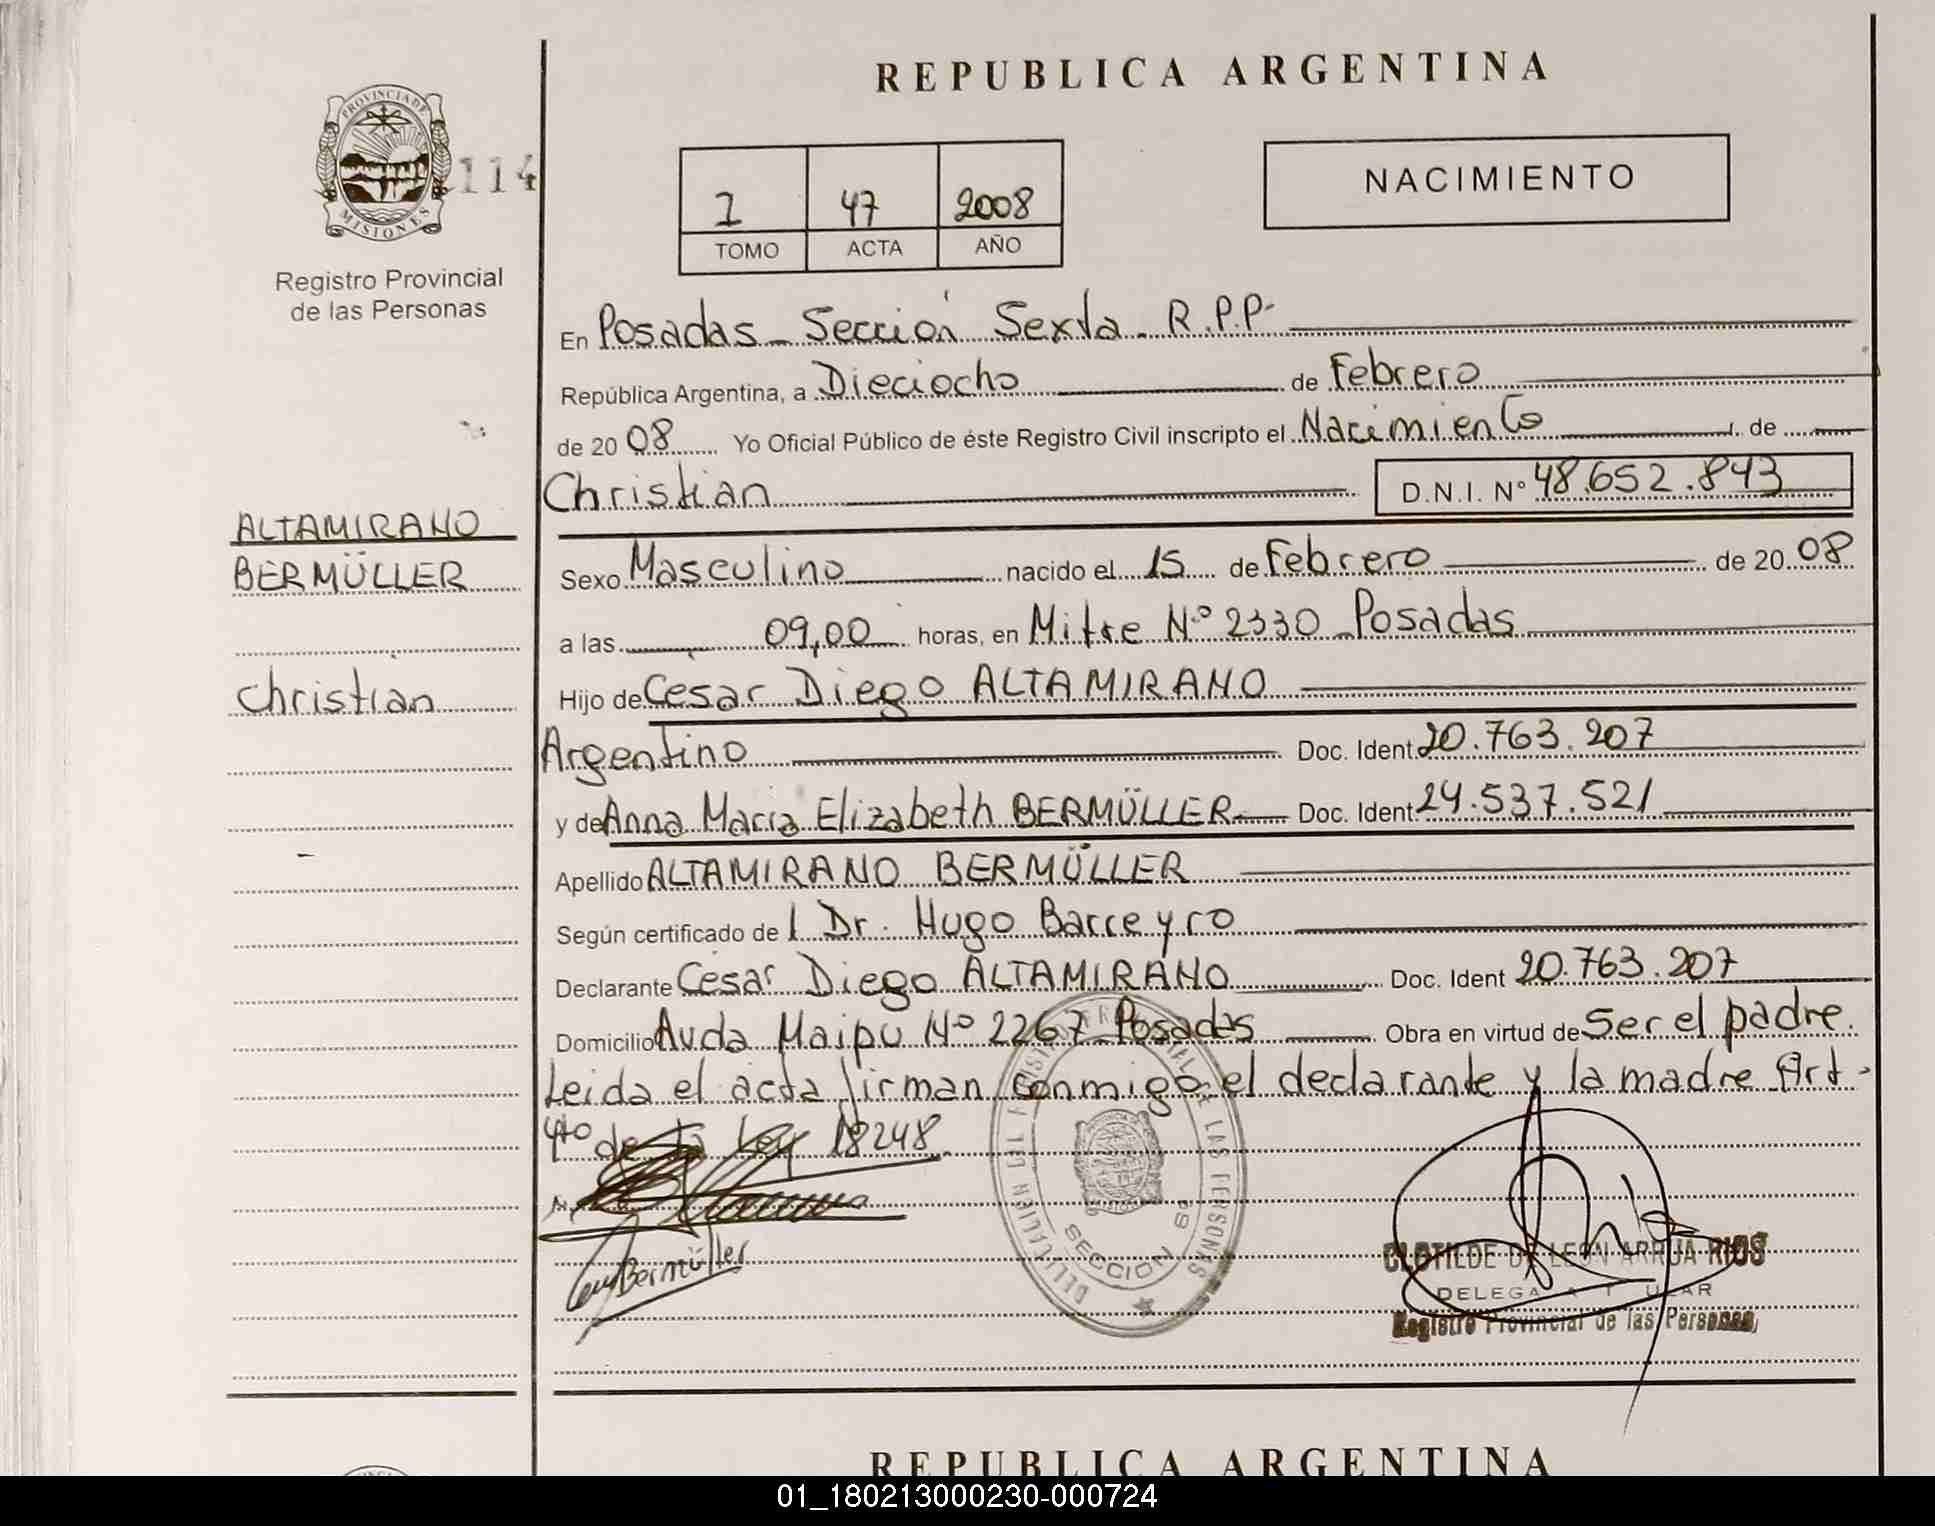 REPUBLICA ARGENTINA
PROVINCIA DE
MISIONES
114
Registro Provincial
de las Personas
1 47 2008
TOMO ACTA AÑO
NACIMIENTO
En Posadas - Sección Sexta - R.P.P-
República Argentina, a Dieciocho de Febrero
de 20 08 Yo Oficial Público de éste Registro Civil inscripto el Nacimiento de
Christian D.N.I. Nº 48.652.843
ALTAMIRANO
BERMÜLLER
Christian
Sexo Masculino nacido el 15 de Febrero de 20 08
a las 09,00 horas, en Mitre Nº 2330 Posadas
Hijo de César Diego ALTAMIRANO
Argentino Doc. Ident 20.763.207
y de Anna María Elizabeth BERMÜLLER Doc. Ident 24.537.521
Apellido ALTAMIRANO BERMÜLLER
Según certificado de l Dr. Hugo Barreyro
Declarante César Diego ALTAMIRANO Doc. Ident 20.763.207
Domicilio Avda Maipu Nº 2267 Posadas Obra en virtud de Ser el padre.
Leida el acta firman conmigo el declarante y la madre Art-
4to de la Ley 18248.
Bermüller
SECCION 6º
CLOTILDE DE LEON ARRUA RIOS
DELEGADA TITULAR
Registro Provincial de las Personas
REPUBLICA ARGENTINA
01_180213000230-000724